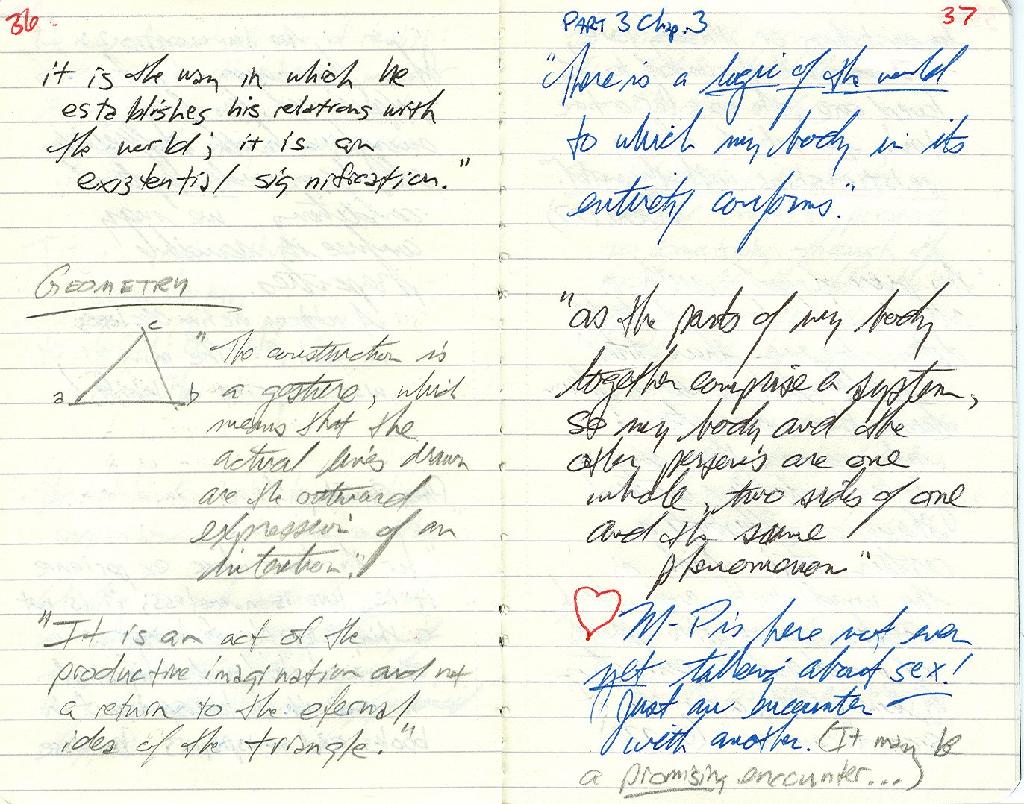 36
it is the way in which he
establishes his relations with
the world; it is an
existential signification."
GEOMETRY
c
a
b
"The construction is
a gesture, which
means that the
actual lines drawn
are the outward
expression of an
intention."
"It is an act of the
productive imagination and not
a return to the eternal
idea of the triangle."
37
PART 3 Chap. 3
"there is a logic of the world
to which my body in its
entirety conforms."
"as the parts of my body
together comprise a system,
so my body and the
other person's are one
whole, two sides of one
and the same
phenomenon"
M-P is here not even
yet talking about sex!
Just an encounter
with another. (It may be
a promising encounter...)